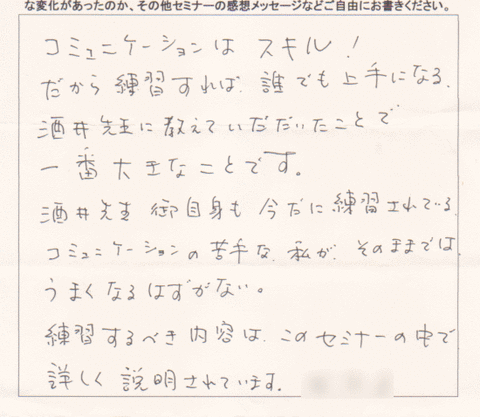 な変化があったのか、その他セミナーの感想メッセージなどご自由にお書きください。
コミュニケーションは スキル！
だから 練習すれば、誰でも上手になる。
酒井先生に教えていだだいたことで
一番大きなことです。
酒井先生 御自身も 今だに練習されている。
コミュニケーションの苦手な、私が、そのままでは、
うまくなるはずがない。
練習するべき内容は、このセミナーの中で
詳しく 説明されています。